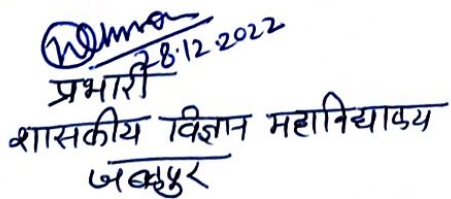 28.12.2022
प्रभारी
शासकीय विज्ञान महाविद्यालय
जबलपुर